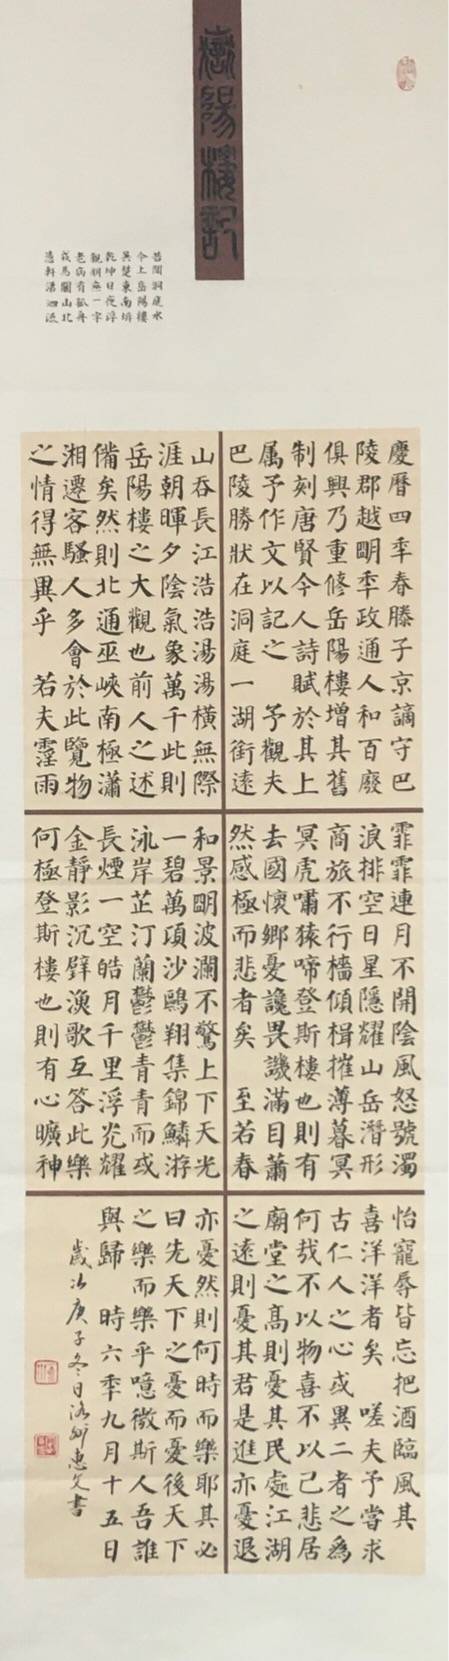 嶽陽樓記
昔聞洞庭水
今上岳陽樓
吳楚東南坼
乾坤日夜浮
親朋無一字
老病有孤舟
戎馬關山北
憑軒涕泗流
慶曆四秊春滕子京謫守巴
陵郡越朙秊政通人和百廢
俱興乃重修岳陽樓增其舊
制刻唐賢今人詩賦於其上
属予作文以記之 予觀夫
巴陵勝狀在洞庭一湖銜遠
山吞長江浩浩湯湯橫無際
涯朝暉夕陰氣象萬千此則
岳陽樓之大觀也前人之述
備矣然則北通巫峽南極瀟
湘遷客騷人多會於此覽物
之情得無異乎 若夫霪雨
霏霏連月不開陰風怒號濁
浪排空日星隱耀山岳潛形
商旅不行檣傾楫摧薄暮冥
冥虎嘯猿啼登斯樓也則有
去國懷鄉憂讒畏譏滿目蕭
然感極而悲者矣 至若春
和景朙波瀾不驚上下天光
一碧萬頃沙鷗翔集錦鱗游
泳岸芷汀蘭鬱鬱青青而或
長煙一空皓月千里浮光耀
金靜影沉璧漁歌互答此樂
何極登斯樓也則有心曠神
怡寵辱皆忘把酒臨風其
喜洋洋者矣 嗟夫予嘗求
古仁人之心或異二者之為
何哉不以物喜不以己悲居
廟堂之高則憂其民處江湖
之遠則憂其君是進亦憂退
亦憂然則何時而樂耶其必
曰先天下之憂而憂後天下
之樂而樂乎噫微斯人吾誰
與歸 時六秊九月十五日
歲次庚子冬日洛州惠文書